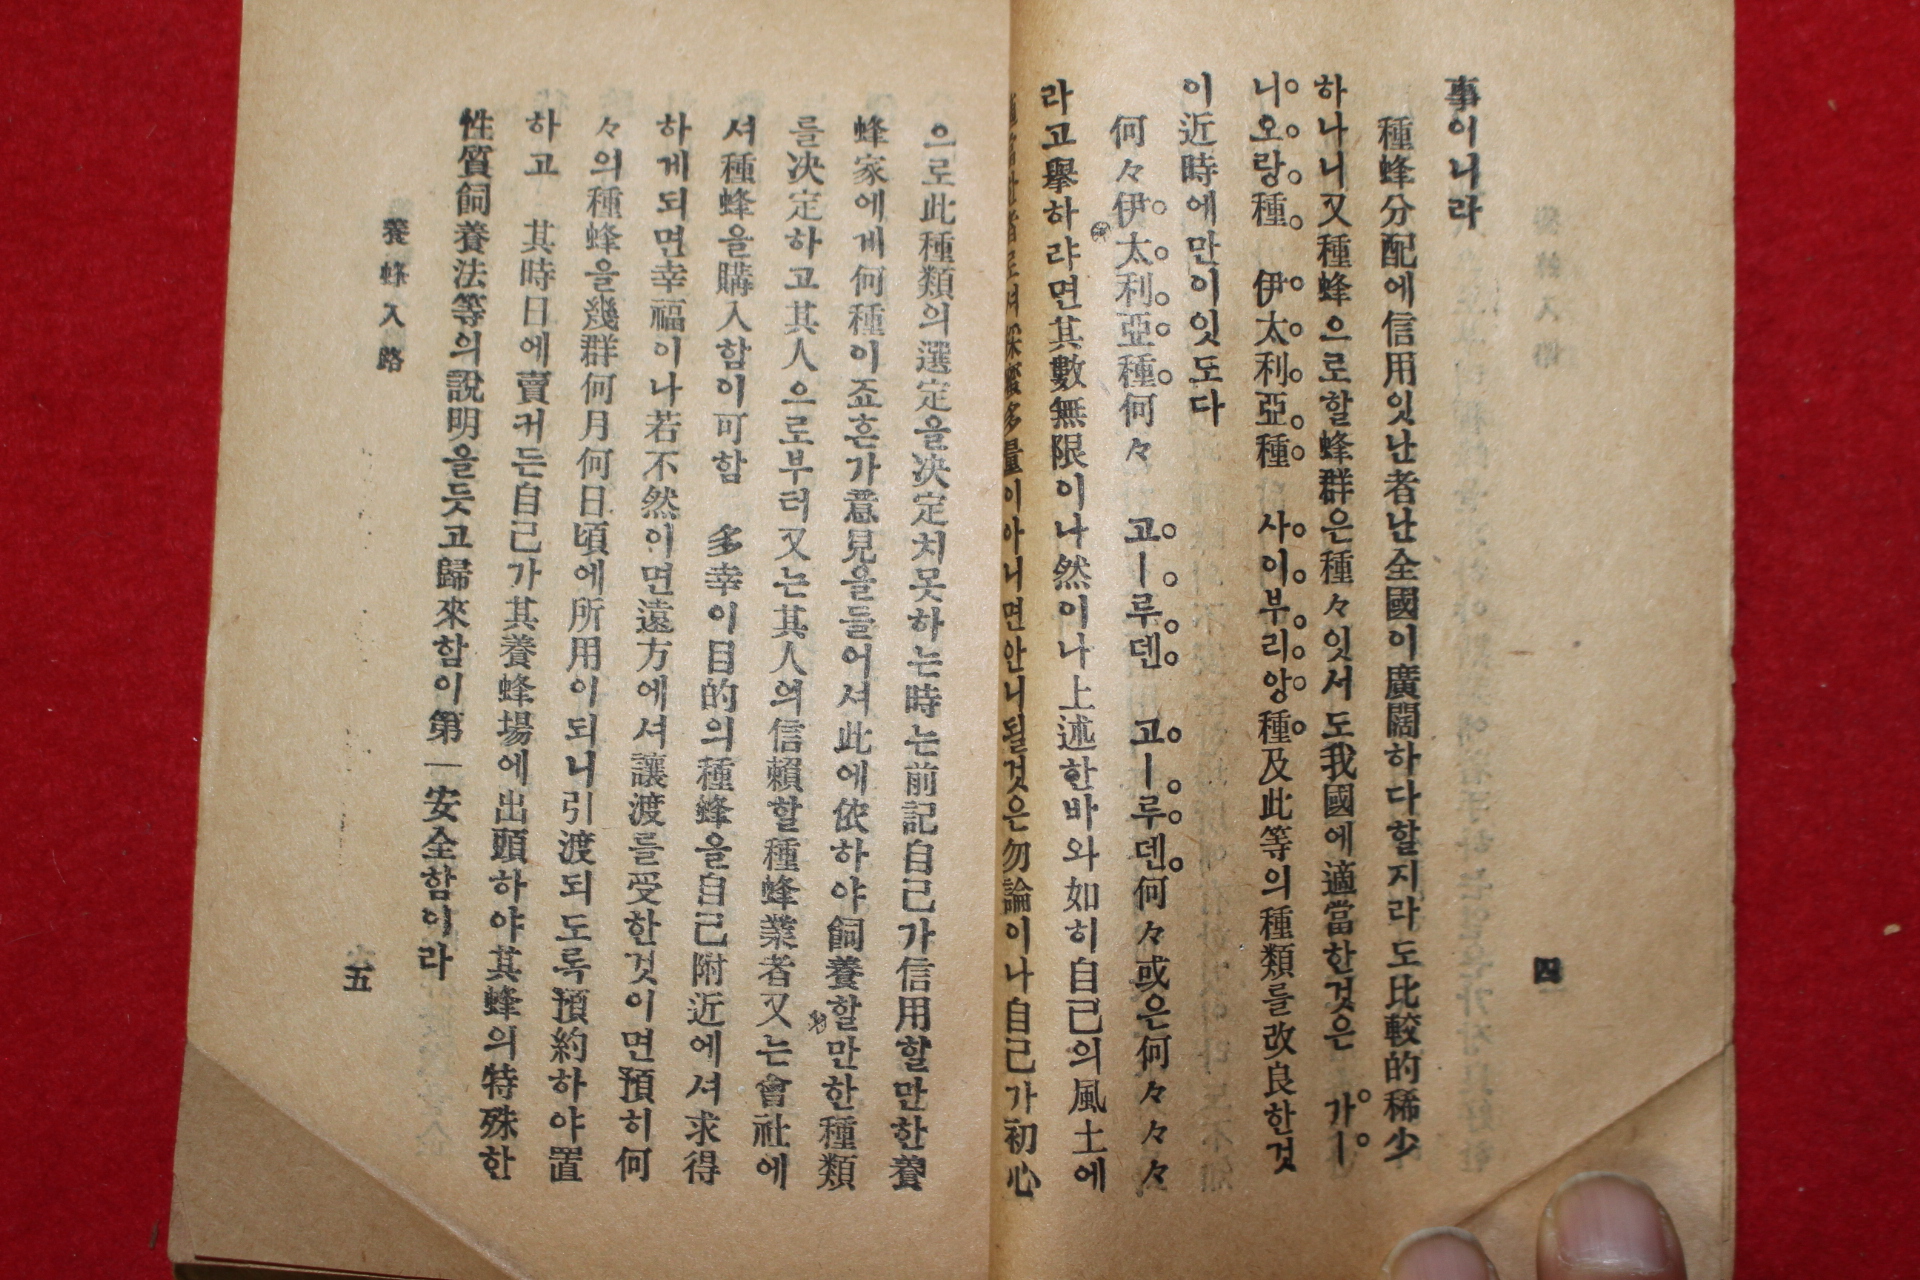 事이니라
種蜂分配에信用잇난者난全國이廣闊하다할지라도比較的稀少
하나니又種蜂으로할蜂群은種々잇서도我國에適當한것은 가ー
니오랑種 伊太利亞種 사이부리앙種及此等의種類를改良한것
이近時에만이잇도다
何々伊太利亞種何々 고ー루덴 고ー루덴何々或은何々々々
라고擧하랴면其數無限이나然이나上述한바와如히自己의風土에
量이아니면안니될것은勿論이나自己가初心
四
으로此種類의選定을決定치못하는時는前記自己가信用할만한養
蜂家에게何種이죠흔가意見을들어셔此에依하야飼養할만한種類
를決定하고其人으로부터又는其人의信賴할種蜂業者又는會社에
셔種蜂을購入함이可함 多幸이目的의種蜂을自己附近에셔求得
하게되면幸福이나若不然이면遠方에셔讓渡를受한것이면預히何
々의種蜂을幾群何月何日頃에所用이되니引渡되도록預約하야置
하고 其時日에賣커든自己가其養蜂場에出頭하야其蜂의特殊한
性質飼養法等의說明을듯고歸來함이第一安全함이라
養蜂入路
五